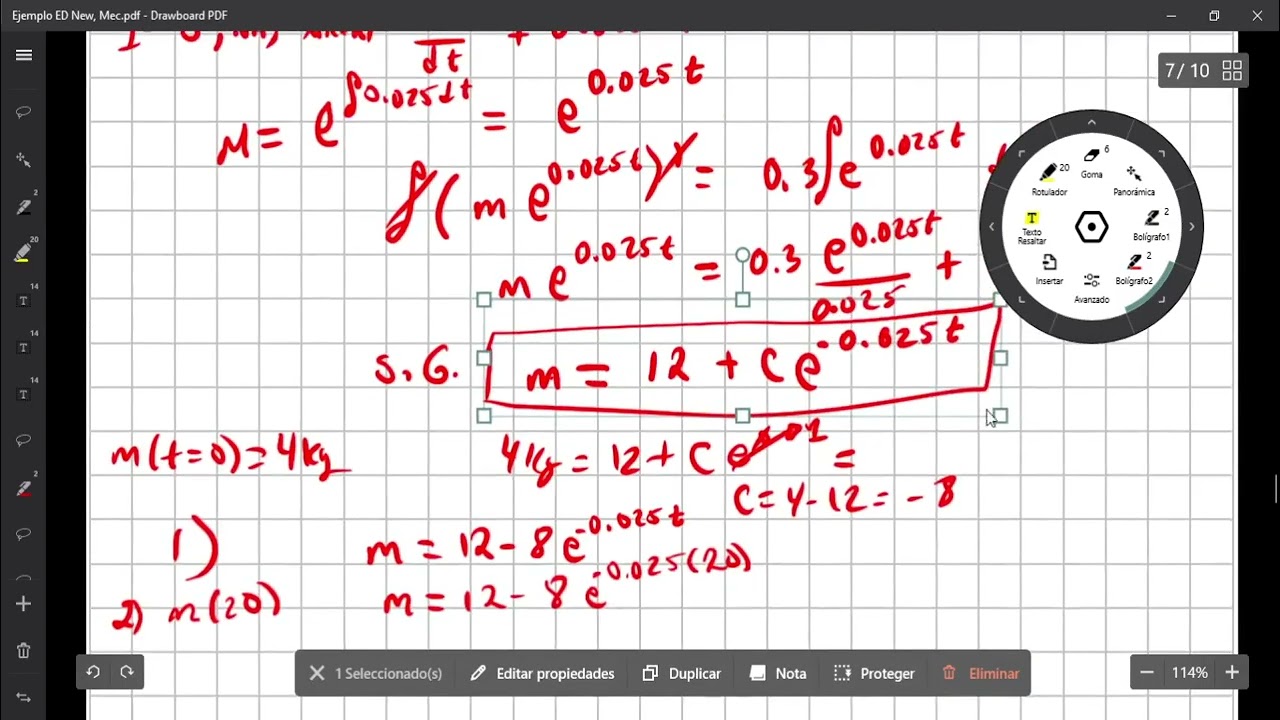 Ejemplo ED New, Mec.pdf - Drawboard PDF
7 / 10
dt
M = e^∫0.025dt = e^0.025t
∫(m e^0.025t)' = 0.3∫e^0.025t
m e^0.025t = 0.3 e^0.025t / 0.025 +
S.G. m = 12 + Ce^-0.025t
m(t=0)=4kg 4Kg = 12 + C e =
C = 4-12 = -8
1) m = 12 - 8e^-0.025t
2) m(20) m = 12 - 8e^-0.025(20)
20
Rotulador
6
Goma
Panorámica
Texto
Resaltar
2
Bolígrafo1
Insertar
2
Bolígrafo2
Avanzado
2
20
14
T
14
T
14
T
2
1 Seleccionado(s) Editar propiedades Duplicar Nota Proteger Eliminar
114%